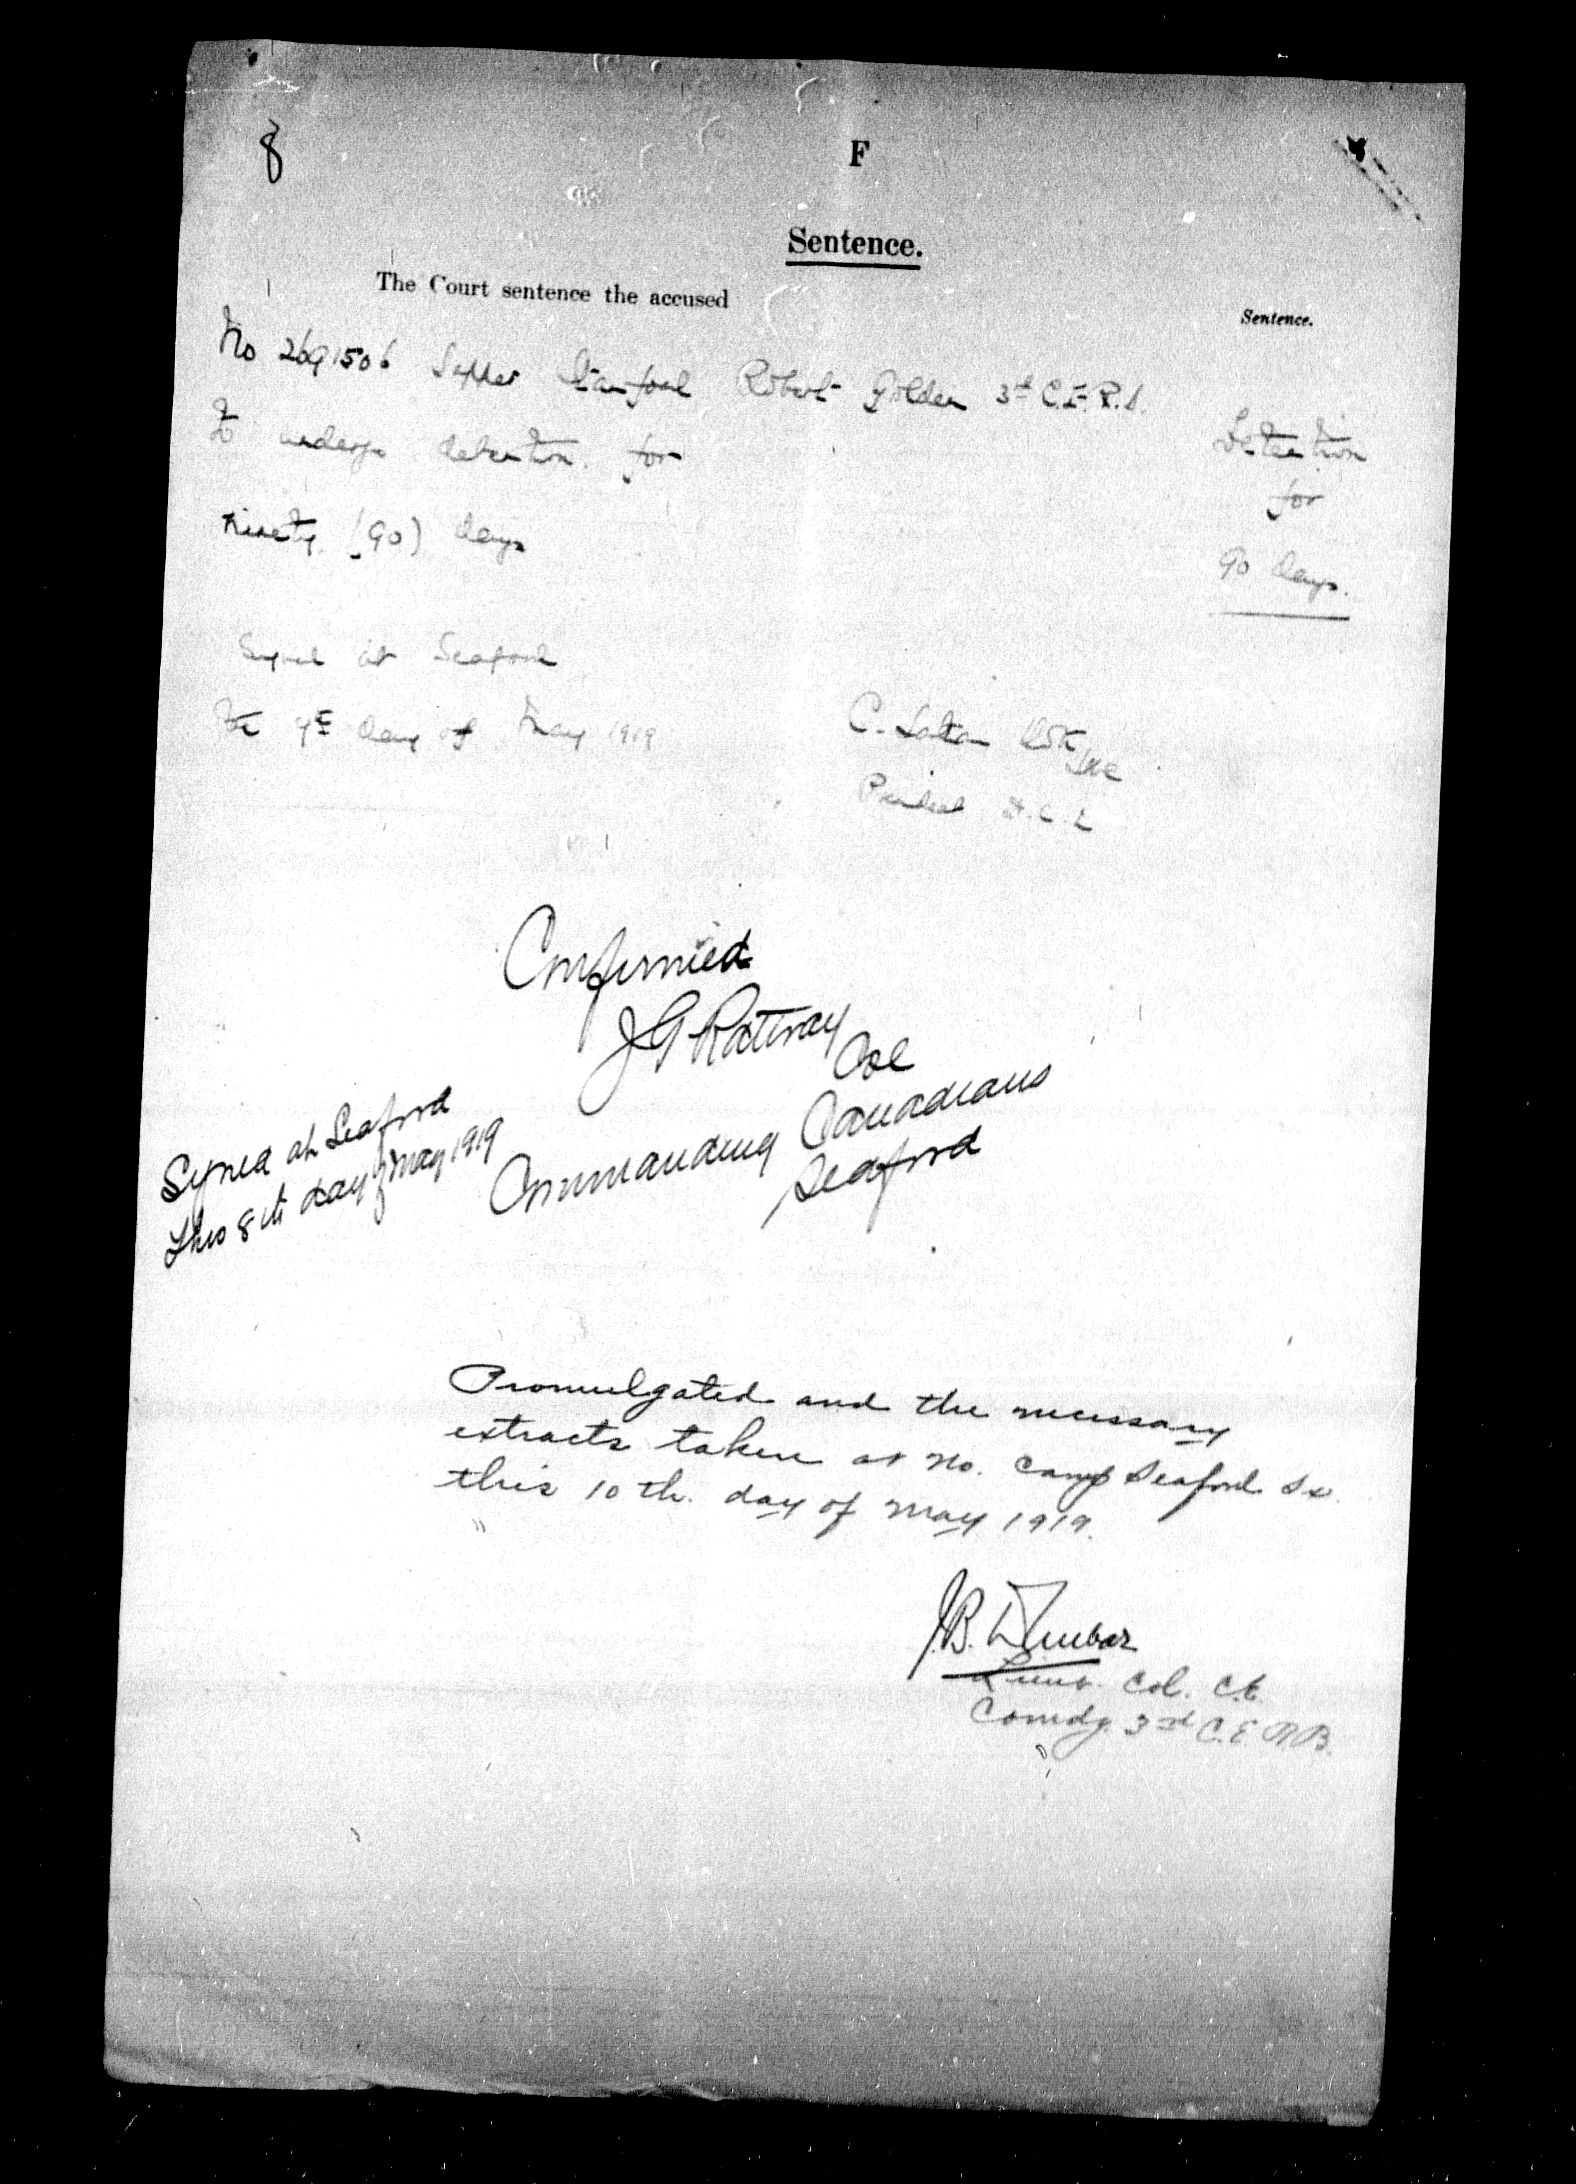 8
F
Sentence.
The Court sentence the accused
Sentence.
No 2691506 Sapper Stanford Robert Golden 3rd C.E.R.B.
To undergo detention for
ninety (90) days
Detention
for
90 days.
Signed at Seaford
the day of May 1919
C.
President D.C.M.
Confirmed
J G Rattray Col
Commanding Canadians
Seaford
Signed at Seaford
this 8th day of May 1919
Promulgated and the necessary
extracts taken at No. Camp Seaford Sx.
this 10th. day of May 1919.
J.B. Dunbar
Lieut. Col. C.E.
Comdg. 3rd C.E.R.B.